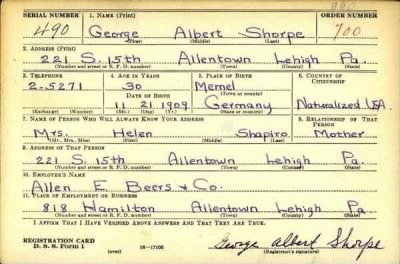 SERIAL NUMBER 1. NAME (Print) ORDER NUMBER
490 George Albert Shorpe 700
(First) (Middle) (Last)
2. ADDRESS (Print)
221 S. 15th Allentown Lehigh Pa.
(Number and street or R. F. D. number) (Town) (County) (State)
3. TELEPHONE 4. AGE IN YEARS 5. PLACE OF BIRTH 6. COUNTRY OF CITIZENSHIP
2-5271 30 Memel
DATE OF BIRTH (Town or county)
11 21 1909 Germany Naturalized USA.
(Exchange) (Number) (Mo.) (Day) (Yr.) (State or country)
7. NAME OF PERSON WHO WILL ALWAYS KNOW YOUR ADDRESS 8. RELATIONSHIP OF THAT PERSON
Mrs. Helen Shapiro Mother
(Mr., Mrs., Miss) (First) (Middle) (Last)
9. ADDRESS OF THAT PERSON
221 S. 15th Allentown Lehigh Pa.
(Number and street or R. F. D. number) (Town) (County) (State)
10. EMPLOYER'S NAME
Allen E. Beers & Co.
11. PLACE OF EMPLOYMENT OR BUSINESS
818 Hamilton Allentown Lehigh Pa.
(Number and street or R. F. D. number) (Town) (County) (State)
I AFFIRM THAT I HAVE VERIFIED ABOVE ANSWERS AND THAT THEY ARE TRUE.
REGISTRATION CARD
D. S. S. Form 1 (over) 16-17105 George Albert Shorpe
(Registrant's signature)